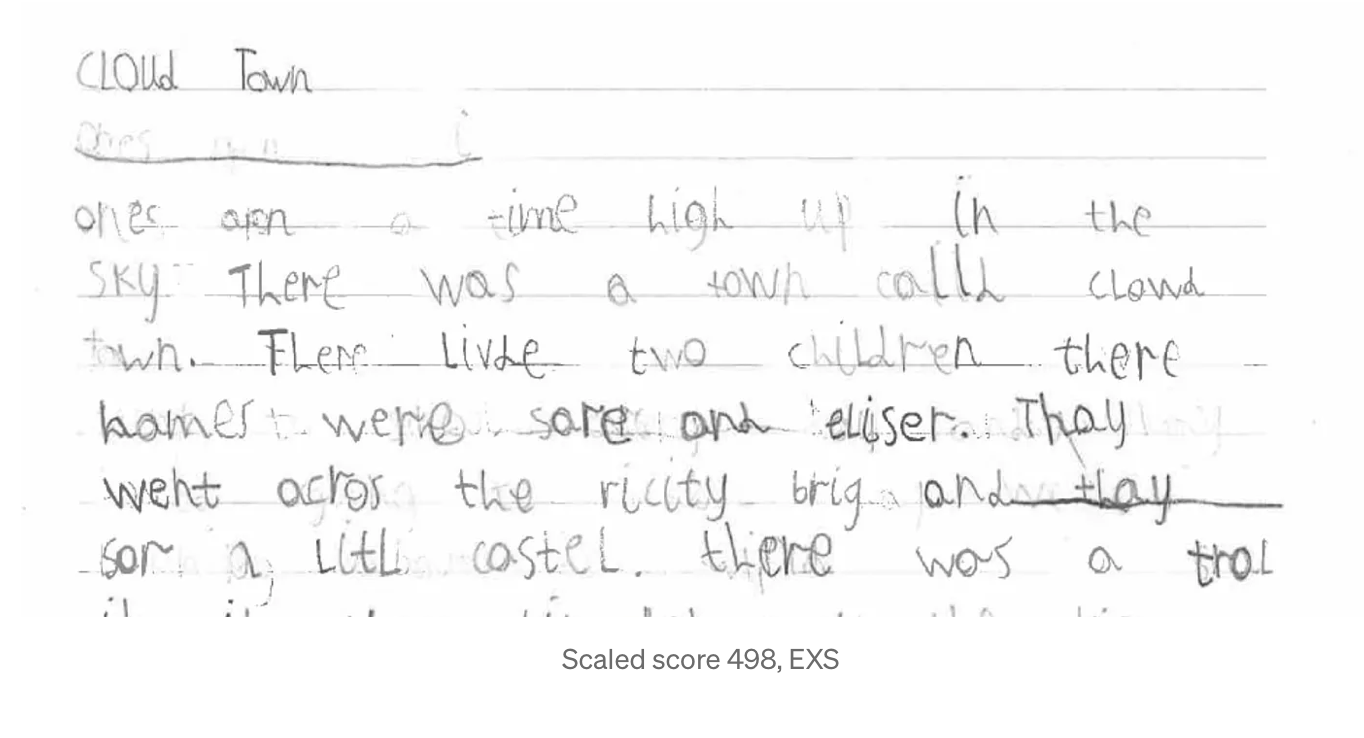 CLOUd Town
ones apon a time high up in the
SKY There was a town calld cloud
town. There Livde two children there
names were sare and eliser. Thay
went acros the ricity brig and thay
sor a Litl castel. there was a trol
Scaled score 498, EXS